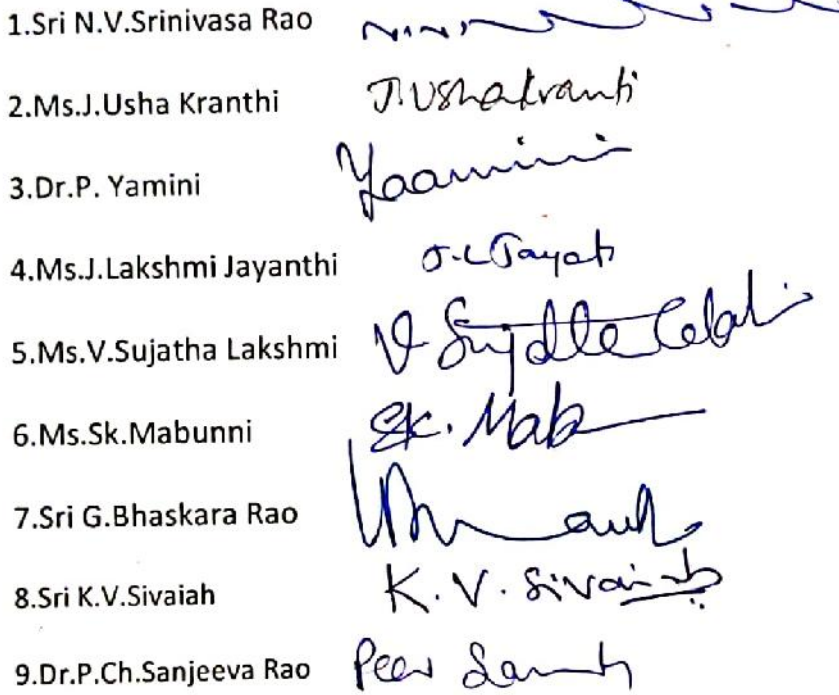 1.Sri N.V.Srinivasa Rao
2.Ms.J.Usha Kranthi J.Ushakranti
3.Dr.P. Yamini Yaamini
4.Ms.J.Lakshmi Jayanthi
5.Ms.V.Sujatha Lakshmi
6.Ms.Sk.Mabunni Sk. Mab
7.Sri G.Bhaskara Rao
8.Sri K.V.Sivaiah K. V. Sivaiah
9.Dr.P.Ch.Sanjeeva Rao